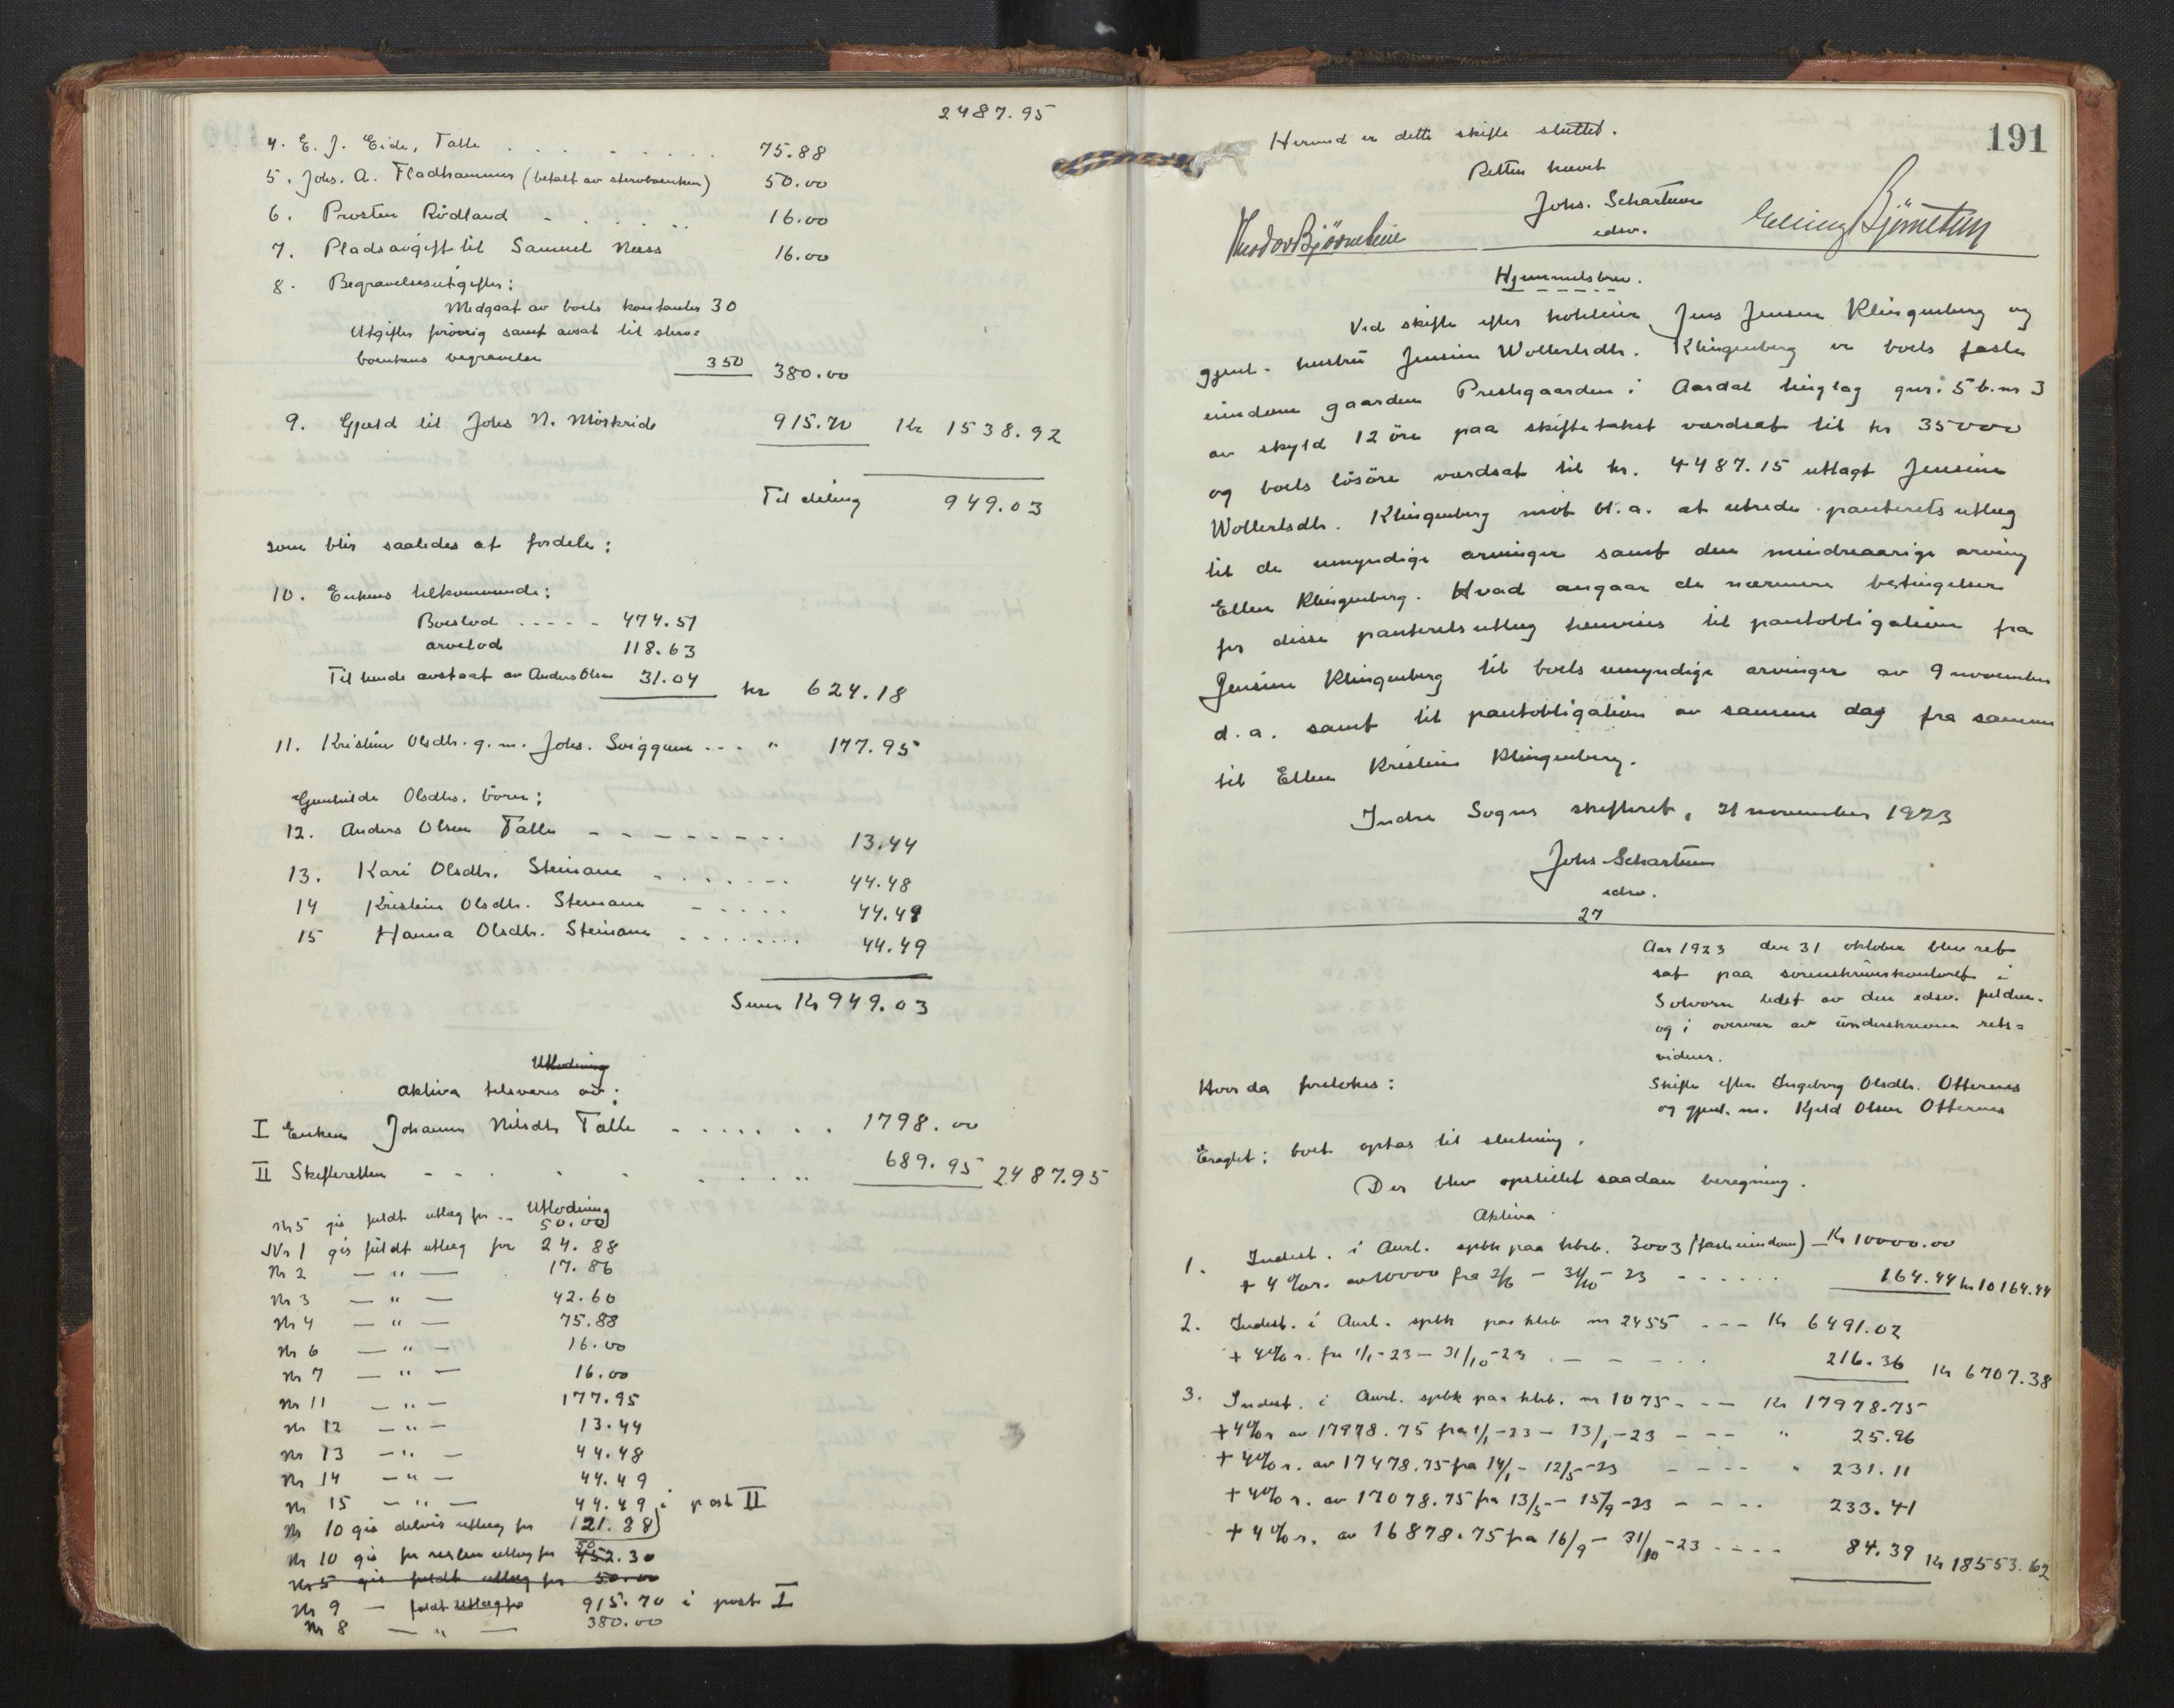 2487.95
4. E. J. Eide, Talle . . . . . . . . 75.88
5. Johs. A. Fladhammer (betalt av stervboenken) 50.00
6. Prosten Rødland - . . . . 16.00
7. Pladsavgift til Samuel Næss 16.00
8. Begravelsesutgifter:
Medgaat av boets kontanter 30
Utgifter forøvrig samt avsat til sterv=
boenkens begravelse 350 380.00
9. Gjæld til Johs N. Moskride 915.70 Kr 1538.92
Til deling 949.03
som blir saaledes at fordele:
10. Enkens tilkommende:
Boeslod . - - - - 474.51
arvelod 118.63
Til hende avstaat av Anders Olsen 31.04 kr 624.18
11. Kristine Olsdtr. g. m. Johs. Sviggum . . . " 177.95
Gunhilda Olsdtrs. börn:
12. Anders Olsen Talle - - - - - - - - . . 13.44
13. Kari Olsdtr. Steinane - . . . . - . 44.48
14 Kristine Olsdtr. Steinane - . . . . 44.49
15 Hanna Olsdtr. Steinane . . . . . . . . 44.49
Sum Kr 949.03
Utlodning
Aktiva tilsvares av:
I Enken Johanne Nilsdtr Talle - . . . . . 1798.00
II Skifteretten - - . . . . . . .. 689.95 2487.95
Utlodning
Nr 5 gis fuldt utlæg for .. 50.00
Nr 1 gis fuldt utlæg for 24.88
Nr 2 — " — 17.86
Nr 3 — " — 42.60
Nr 4 — " — 75.88
Nr 6 — " — 16.00
Nr 7 — " — 16.00
Nr 11 — " — 177.95
Nr 12 — " — 13.44
Nr 13 — " — 44.48
Nr 14 — " — 44.49
Nr 15 — " — 44.49 i post II
Nr 10 gis delvis utlæg for 121.88
Nr 10 gis for resten utlæg for 502.30
Nr 5 gis fuldt utlæg for 50.00
Nr 9 — fuldt utlæg for 915.70 i post I
Nr 8 — " — 380.00
191
Hermed er dette skifte sluttet.
Retten hævet
Johs. Schartum
edsv.
Theodor Bjørnetun Elling Bjørnetun
Hjemmelsbrev.
Ved skifte efter hoteleier Jens Jensen Klingenberg og
gjenl. hustru Jensine Wollertsdtr. Klingenberg er boets faste
eiendom gaarden Prestegaarden i Aardal tinglag gnr. 5 b.nr 3
av skyld 12 öre paa skiftetakst værdsat til kr 35000
og boets lösöre værdsat til kr. 4487.15 utlagt Jensine
Wollertsdtr. Klingenberg mot bl.a. at utrede panterets utlæg
til de umyndige arvinger samt den mindreaarige arving
Ellen Klingenberg. Hvad angaar de nærmere betingelser
for disse panterets utlæg henvises til pantobligation fra
Jensine Klingenberg til boets umyndige arvinger av 9 november
d.a. samt til pantobligation av samme dag fra samme
til Ellen Kristine Klingenberg.
Indre Sogns skifteret, 21 november 1923
Johs Schartum
edsv.
27
Aar 1923 den 31 oktober blev ret
sat paa sorenskriverkontoret i
Solvorn ledet av den edsv. fuldm.
og i overvær av underskrevne rets=
vidner.
Hvor da foretokes: Skifte efter Ingeborg Olsdtr. Otternes
og gjenl. m. Kjeld Olsen Otternes
Eragtet: boet optas til slutning.
Der blev opstillet saadan beregning.
Aktiva
1. Indest. i Aurl. spbk paa ktrb. 3003 (fast eiendom) — Kr 10000.00
+ 4 % r. av 10000 fra 2/6 - 31/10 - 23 - - . . . . 164.44 kr 10164.44
2. Indest. i Aurl. spbk paa ktrb nr 2455 - - - Kr 6491.02
+ 4 % r. fra 1/1-23 - 31/10-23 . - - - . . 216.36 Kr 6707.38
3. Indest. i Aurl. spbk paa ktrb. nr 1075 - - - Kr 17978.75
+ 4 % r av 17978.75 fra 1/1-23 - 13/1-23 - - - " 25.96
+ 4 % r. av 17478.75 fra 14/1 - 12/5-23 - - - - " 231.11
+ 4 % r. av 17078.75 fra 13/5 - 15/9-23 - - - - 233.41
+ 4 % r. av 16878.75 fra 16/9 - 31/10-23 - - - - 84.39 Kr 18553.62